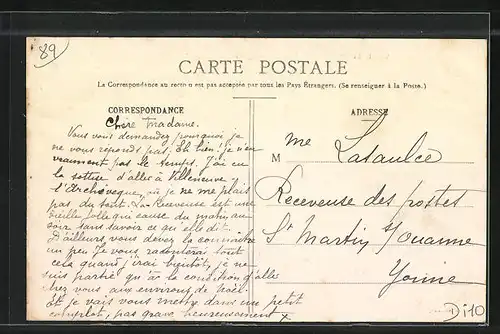 89
CARTE POSTALE
La Correspondance au recto n'est pas acceptée par tous les Pays Étrangers. (Se renseigner à la Poste.)
CORRESPONDANCE
ADRESSE
Chère Madame.
Vous vous demandez pourquoi je
ne vous réponds pas. Eh bien ! je n'en
vraiment pas le temps. J'ai eu
la sottise d'aller à Villeneuve
l'Archevêque, où je ne me plais
pas du tout. La Receveuse est une
vieille folle qui cause du matin au
soir sans savoir ce qu'elle dit.
D'ailleurs vous devez la connaître
un peu. Je vous raconterai tout
cela quand j'irai bientôt, je ne
suis partie qu'à la condition d'aller
chez vous aux environs de Noël.
Et je vais vous mettre dans un petit
complot, pas grave heureusement x
M me Lasaulce
Receveuse des postes
St Martin s/ Ouanne
Yonne
D i 10